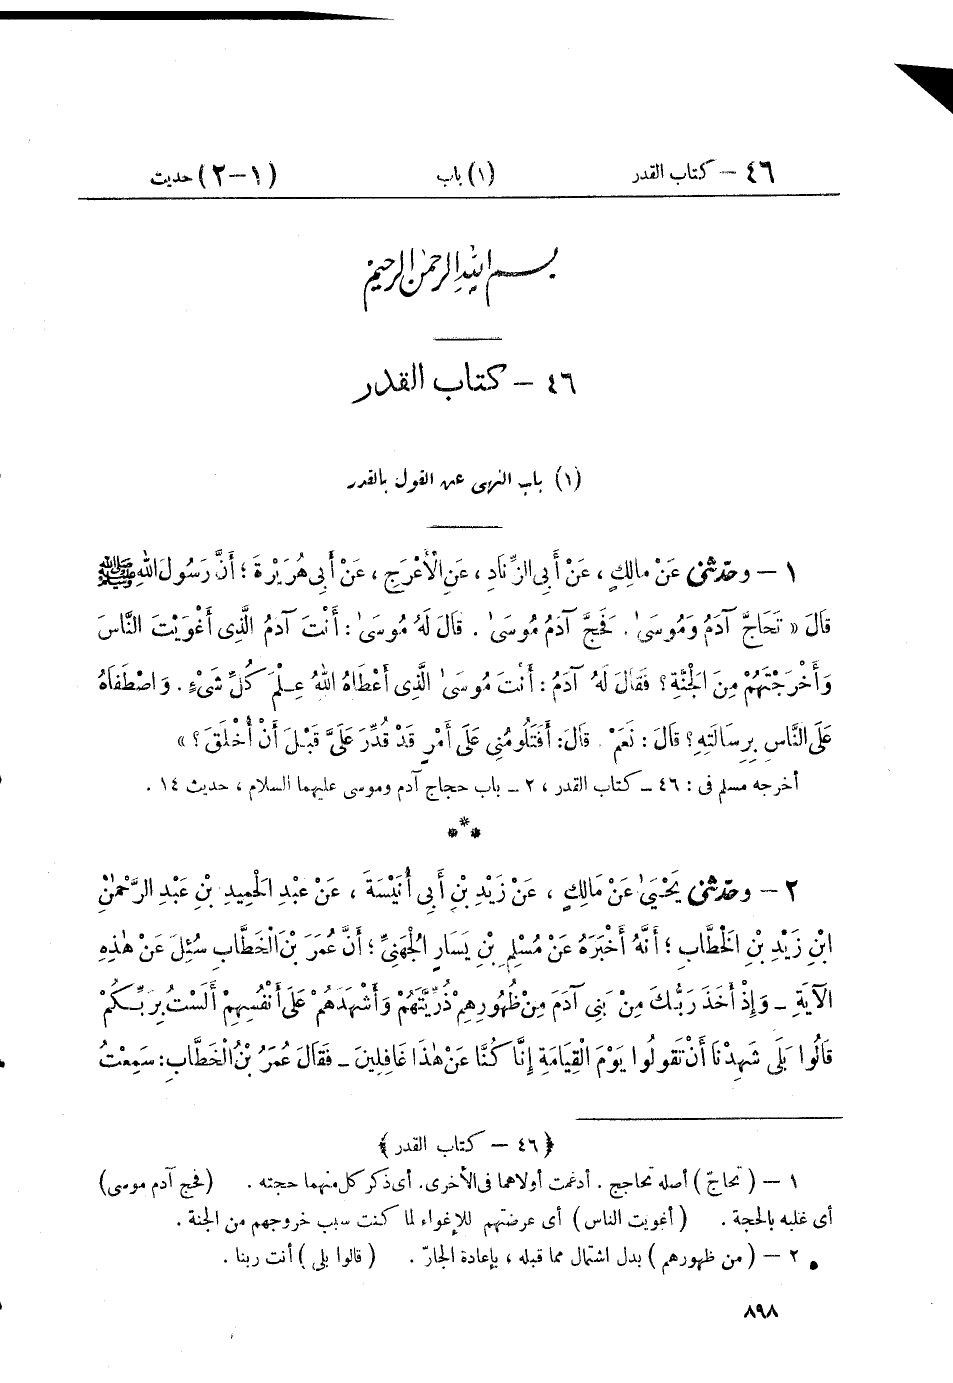 ٤٦ – كتاب القدر (١) باب (١–٢) حديث
بسم الله الرحمن الرحيم
٤٦ – كتاب القدر
(١) باب النهى عن القول بالقدر
١ – وحدّثنى عَنْ مالِكٍ ، عَنْ أَبِى الزِّنَادِ ، عَنِ الْأَعْرَجِ ، عَنْ أَبِى هُرَيْرَةَ ؛ أَنَّ رَسُولَ اللهِ ﷺ
قَالَ « تَحَاجَّ آدَمُ وَمُوسَى . فَحَجَّ آدَمُ مُوسَى . قَالَ لَهُ مُوسَى : أَنْتَ آدَمُ الَّذِى أَغْوَيْتَ النَّاسَ
وَأَخْرَجْتَهُمْ مِنَ الْجَنَّةِ ؟ فَقَالَ لَهُ آدَمُ : أَنْتَ مُوسَى الَّذِى أَعْطَاهُ اللهُ عِلْمَ كُلِّ شَىْءٍ . وَاصْطَفَاهُ
عَلَى النَّاسِ بِرِسَالَتِهِ ؟ قَالَ : نَعَمْ . قَالَ : أَفَتَلُومُنِى عَلَى أَمْرٍ قَدْ قُدِّرَ عَلَىَّ قَبْلَ أَنْ أُخْلَقَ ؟ »
أخرجه مسلم فى : ٤٦ – كتاب القدر ، ٢ – باب حجاج آدم وموسى عليهما السلام ، حديث ١٤ .
***
٢ – وحدّثنى يَحْيَى عَنْ مَالِكٍ ، عَنْ زَيْدِ بْنِ أَبِى أُنَيْسَةَ ، عَنْ عَبْدِ الْحَمِيدِ بْنِ عَبْدِ الرَّحْمٰنِ
ابْنِ زَيْدِ بْنِ الْخَطَّابِ ؛ أَنَّهُ أَخْبَرَهُ عَنْ مُسْلِمِ بْنِ يَسَارٍ الْجُهَنِىِّ ؛ أَنَّ عُمَرَ بْنَ الْخَطَّابِ سُئِلَ عَنْ هٰذِهِ
الآيَةِ – وَإِذْ أَخَذَ رَبُّكَ مِنْ بَنِى آدَمَ مِنْ ظُهُورِهِمْ ذُرِّيَّتَهُمْ وَأَشْهَدَهُمْ عَلَى أَنْفُسِهِمْ أَلَسْتُ بِرَبِّكُمْ
قَالُوا بَلَى شَهِدْنَا أَنْ تَقُولُوا يَوْمَ الْقِيَامَةِ إِنَّا كُنَّا عَنْ هٰذَا غَافِلِينَ – فَقَالَ عُمَرُ بْنُ الْخَطَّابِ : سَمِعْتُ
﴿ ٤٦ – كتاب القدر ﴾
١ – (تحاجّ) أصله تحاجج . أدغمت أولاهما فى الأخرى . أى ذكر كل منهما حجته . (فحج آدم موسى)
أى غلبه بالحجة . (أغويت الناس) أى عرضتهم للإغواء لما كنت سبب خروجهم من الجنة .
٢ – (من ظهورهم) بدل اشتمال مما قبله ، بإعادة الجارّ . (قالوا بلى) أنت ربنا .
٨٩٨